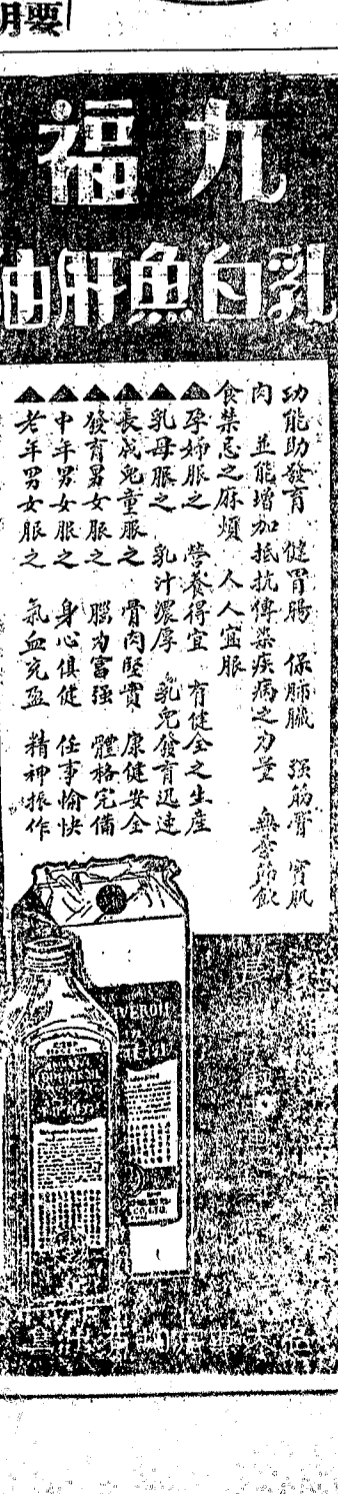 九福
乳白魚肝油
功能助發育 健胃腸 保肺臟 强筋骨 實肌
肉 並能增加抵抗傳染疾病之力量 無季節飲
食禁忌之麻煩 人人宜服
▲孕婦服之 營養得宜 有健全之生產
▲乳母服之 乳汁濃厚 乳兒發育迅速
▲長成兒童服之 骨肉堅實 康健安全
▲發育男女服之 腦力富强 體格完備
▲中年男女服之 身心俱健 任事愉快
▲老年男女服之 氣血充盈 精神振作